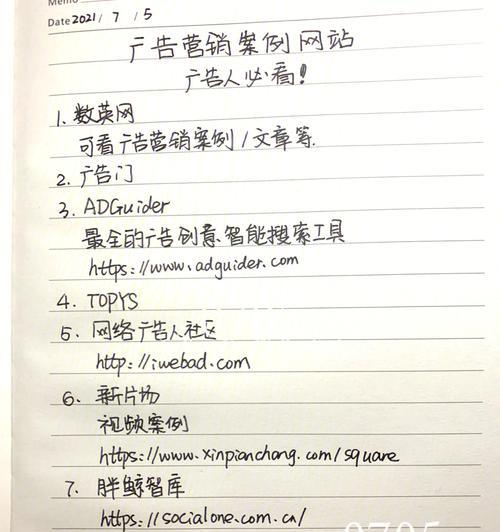 Memo
Date 2021 / 7 / 5
广告营销案例网站
广告人必看!
1. 数英网
可看广告营销案例/文章等.
2. 广告门
3. ADGuider
最全的广告创意智能搜索工具
https://www.adguider.com
4. TOPYS
5. 网络广告人社区
http://iwebad.com
6. 新片场
视频案例
https://www.xinpianchang.com/square
7. 胖鲸智库
https://socialone.com.cn/